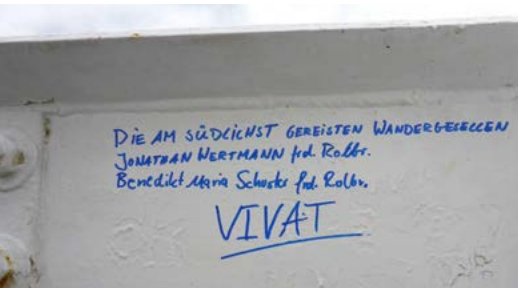 DIE AM SÜDLICHST GEREISTEN WANDERGESELLEN
JONATHAN WERTMANN frd. Rolbr.
Benedikt Maria Schuster frd. Rolbr.
VIVAT